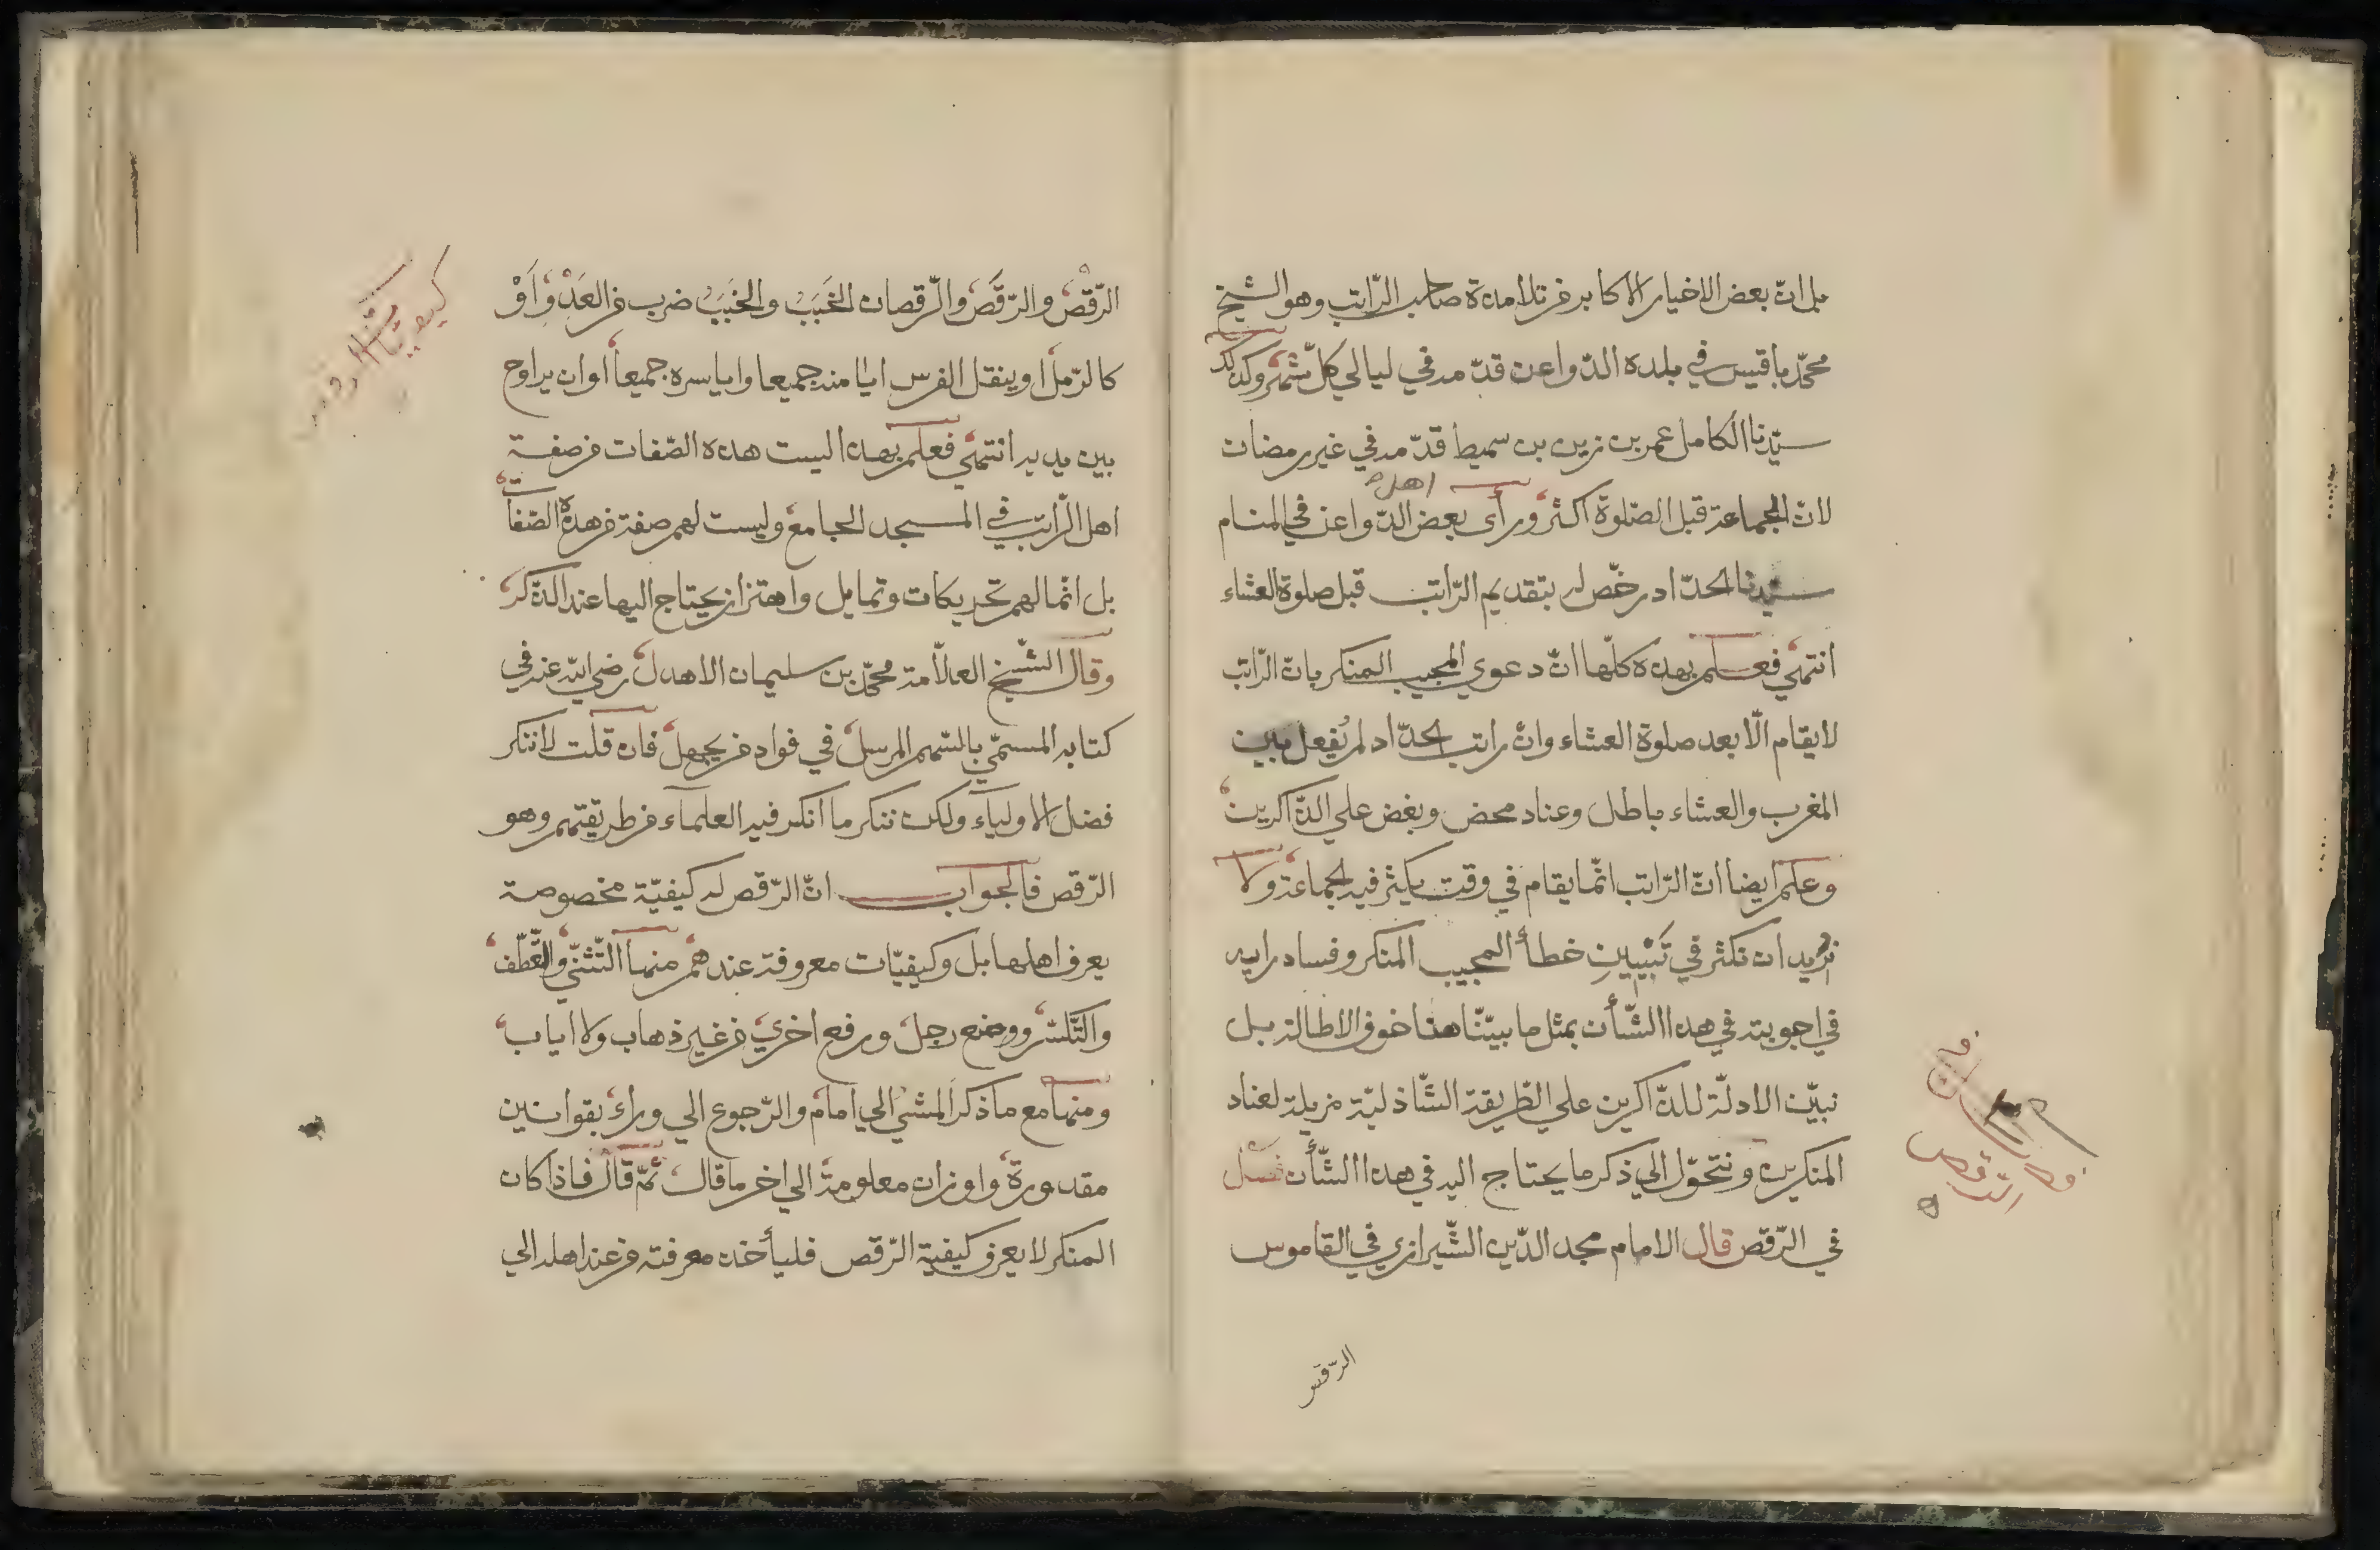 بل انّ بعض الاخيار الاكابر من تلامدة صاحب الرّاتب وهو الشيخ
محمّد باقيس في بلده الدّواعن قدّمه في ليالي كلّ شهر وكدلك
سيّدنا الكامل عمر بن زين بن سميط قدّمه في غير رمضان
لانّ الجماعة قبل الصّلوة اكثر ورأى بعض اهل الدّواعن في المنام
سيّدنا الحدّاد رخّص له بتقديم الرّاتب قبل صلوة العشاء
انتهي فعلم بهده كلّها انّ دعوي المجيب المنكر بانّ الرّاتب
لا يقام الّا بعد صلوة العشاء وانّ راتب الحدّاد لم يُفعل بين
المغرب والعشاء باطل وعناد محض وبغض علي الدّاكرين
وعلم ايضا انّ الرّاتب انّما يقام في وقت يكثر فيه الجماعة ولا
نريد ان نكثر في تَبْيِينِ خطأ المجيب المنكر وفساد رايه
في اجوبته في هدا الشّأن بمثل ما بيّنّا هنا خوف الاطالة بل
نبيّن الادلّة للدّاكرين علي الطّريقة الشّاذليّة مزيلة لعناد
المنكرين ونتحوّل الي ذكر ما يحتاج اليه في هدا الشّأن فصل
في الرّقص قال الامام مجد الدّين الشّيرازي في القاموس
الرّقص
الرّقْص والرّقَص والرّقصان الخَبَبُ والخَبَبُ ضرب من العَدْوِ اَوْ
كالرّمل او ينقل الفرس ايامنه جميعا واياسره جميعا او ان يراوح
بين يديه انتهي فعلم بهدا اليست هده الصّفات من صفة
اهل الرّاتب في المسجد الجامع وليست لهم صفة من هده الصّفات
بل انّما لهم تحريكات وتمايل واهتزاز يحتاج اليها عند الدّكر
وقال الشّيخ العلّامة محمّد بن سليمان الاهدل رضي اللّه عنه في
كتابه المسمّي بالسّهم المرسل في فواد من يجهل فان قلت لا ننكر
فضل الاولياء ولكن ننكر ما انكر فيه العلماء من طريقتهم وهو
الرّقص فالجواب انّ الرّقص له كيفيّة مخصوصة
يعرف اهلها بل وكيفيّات معروفة عندهم منها التّثنّي والتّعطّف
والتّكسّر ووضع رجل ورفع اخري من غير ذهاب ولا اياب
ومنها مع ما ذكر المشي الي امام والرّجوع الي وراء بقوانين
مقدورة واوزان معلومة الي اخر ما قال ثمّ قال فاذا كان
المنكر لا يعرف كيفية الرّقص فليأخد معرفته من عند اهله الي